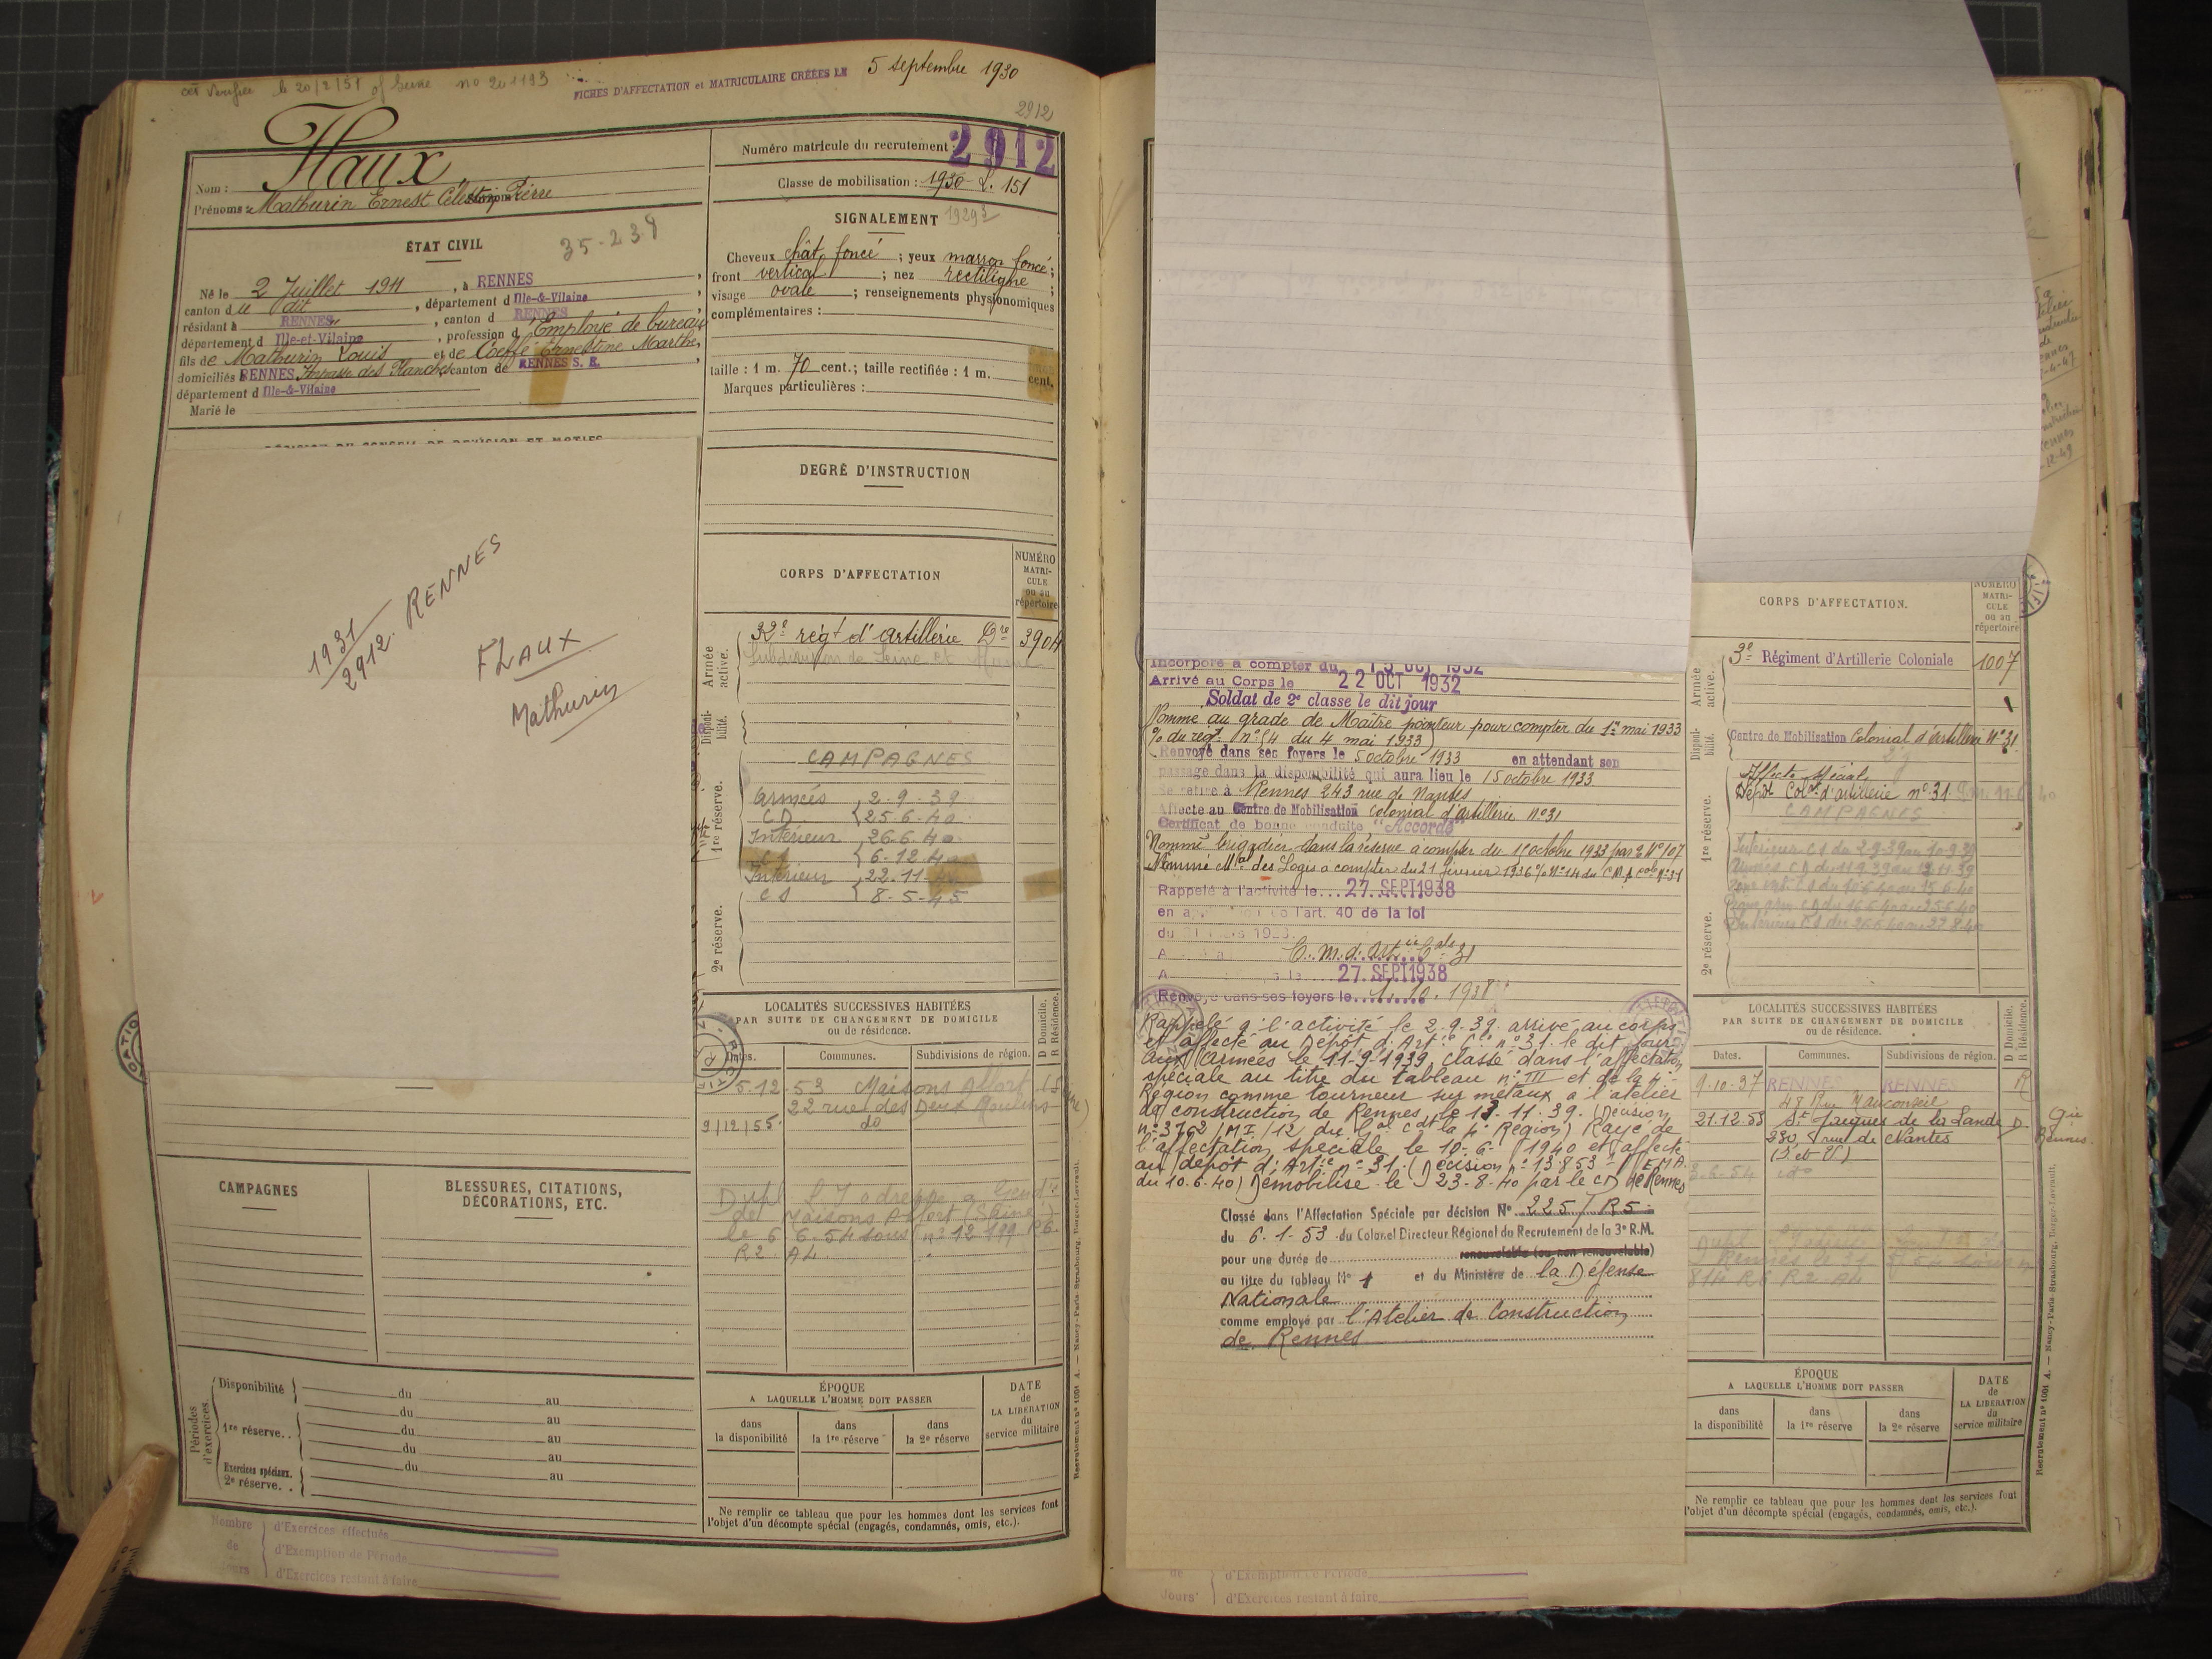 le 20/2/51
FICHES D'AFFECTATION et MATRICULAIRE CRÉÉES LE 5 septembre 1930
2912
Nom : Flaux
Prénoms : Mathurin Ernest Célestin Pierre
Numéro matricule du recrutement : 2912
Classe de mobilisation : 1930
ÉTAT CIVIL
35-238
Né le 2 Juillet 1911, à RENNES,
canton du dit, département d Ille-&-Vilaine,
résidant à RENNES, canton d RENNES,
département d Ille-et-Vilaine, profession d'Employé de bureau
fils de Mathurin Louis et de Coeffé Ernestine Marthe,
domiciliés à RENNES Impasse des Planches canton de RENNES S. E.
département d Ille-&-Vilaine
Marié le
SIGNALEMENT
Cheveux chât. foncé ; yeux marron foncé ;
front vertical ; nez rectiligne ;
visage ovale ; renseignements physionomiques
complémentaires :
taille : 1 m. 70 cent.; taille rectifiée : 1 m. cent.
Marques particulières :
DEGRÉ D'INSTRUCTION
1931
2912. RENNES
FLAUX
Mathurin
CORPS D'AFFECTATION
NUMÉRO MATRI-CULE ou au répertoire
Armée active.
32e régt d'artillerie
Disponi-bilité.
CAMPAGNES
1re réserve.
Armées 2-9-39
CD 25-6-40
Intérieur 26-6-40
6-12-40
Intérieur 22-11-
CS 8-5-45
2e réserve.
LOCALITÉS SUCCESSIVES HABITÉES
PAR SUITE DE CHANGEMENT DE DOMICILE
ou de résidence.
D Domicile.
R Résidence.
Dates. Communes. Subdivisions de région.
5-12-53 Maisons Alfort
22 rue des Deux Moulins
9/12/55. do
de Maisons Alfort (Seine)
R2 A4
CAMPAGNES
BLESSURES, CITATIONS,
DÉCORATIONS, ETC.
Périodes d'exercices.
Disponibilité du au
du au
1re réserve. . du au
du au
Exercices spéciaux. 2e réserve. . du au
ÉPOQUE
A LAQUELLE L'HOMME DOIT PASSER
dans la disponibilité
dans la 1re réserve
dans la 2e réserve
DATE de LA LIBÉRATION du service militaire
Ne remplir ce tableau que pour les hommes dont les services font
l'objet d'un décompte spécial (engagés, condamnés, omis, etc.).
Recrutement n° 1001 A. — Nancy-Paris-Strasbourg, Berger-Levrault.
Nombre d'Exercices effectués
de d'Exemption de Période
Jours d'Exercices restant à faire
Incorporé à compter du 15 OCT 1932
Arrivé au Corps le 22 OCT 1932
Soldat de 2e classe le dit jour
Nommé au grade de Maître pointeur pour compter du 1er mai 1933
du régt n° 54 du 4 mai 1933
Renvoyé dans ses foyers le 5 octobre 1933 en attendant son
passage dans la disponibilité qui aura lieu le 15 octobre 1933
Se retire à Rennes 243 rue de Nantes
Affecté au Centre de Mobilisation Colonial d'artillerie n°31
Certificat de bonne conduite "Accordé"
Nommé brigadier dans la réserve à compter du 15 octobre 1933 par
Nommé Mal des Logis à compter du 21 février 1936
Rappelé à l'activité le 27 SEPT 1938
en application de l'art. 40 de la loi
27 SEPT 1938
Renvoyé dans ses foyers le 1. 10. 1938
Rappelé à l'activité le 2.9.39. arrivé au corps
et affecté au Dépôt d'Artie Cle n°31 le dit jour
Aux Armées le 11-9-1939, classé dans l'affectation
spéciale au titre du tableau n° III et de la 4e
Région comme tourneur sur métaux à l'atelier
de construction de Rennes, le 13.11.39. (Décision
n° 3762/MI/12 du Gal Cdt la 4e Région) Rayé de
l'affectation spéciale le 10-6-1940 et affecté
au dépôt d'Artie n°31 (Décision n° 13853 EMA
du 10.6.40) Démobilisé le 23-8-40 par le CD de Rennes
Classé dans l'Affectation Spéciale par décision N° 225/R5
du 6-1-53 du Colonel Directeur Régional du Recrutement de la 3e R.M.
pour une durée de renouvelable (ou non renouvelable)
au titre du tableau N° 1 et du Ministère de la Défense
Nationale
comme employé par l'Atelier de Construction
de Rennes
de d'Exemption de Période
Jours d'Exercices restant à faire
CORPS D'AFFECTATION.
NUMÉRO MATRI-CULE ou au répertoire
Armée active.
3e Régiment d'Artillerie Coloniale 1007
Disponi-bilité.
Centre de Mobilisation Colonial d'Artillerie N°31
1re réserve.
Affecté spécial
Dépôt Colal d'artillerie n°31
CAMPAGNES
2e réserve.
LOCALITÉS SUCCESSIVES HABITÉES
PAR SUITE DE CHANGEMENT DE DOMICILE
ou de résidence.
D Domicile.
R Résidence.
Dates. Communes. Subdivisions de région.
9-10-37 RENNES RENNES R
48 Rue Vauconseil
21.12.53 St Jacques de la Lande D
230, rue de Nantes
(I et V)
Rennes
ÉPOQUE
A LAQUELLE L'HOMME DOIT PASSER
dans la disponibilité
dans la 1re réserve
dans la 2e réserve
DATE de LA LIBÉRATION du service militaire
Ne remplir ce tableau que pour les hommes dont les services font
l'objet d'un décompte spécial (engagés, condamnés, omis, etc.).
Recrutement n° 1001 A. — Nancy-Paris-Strasbourg, Berger-Levrault.